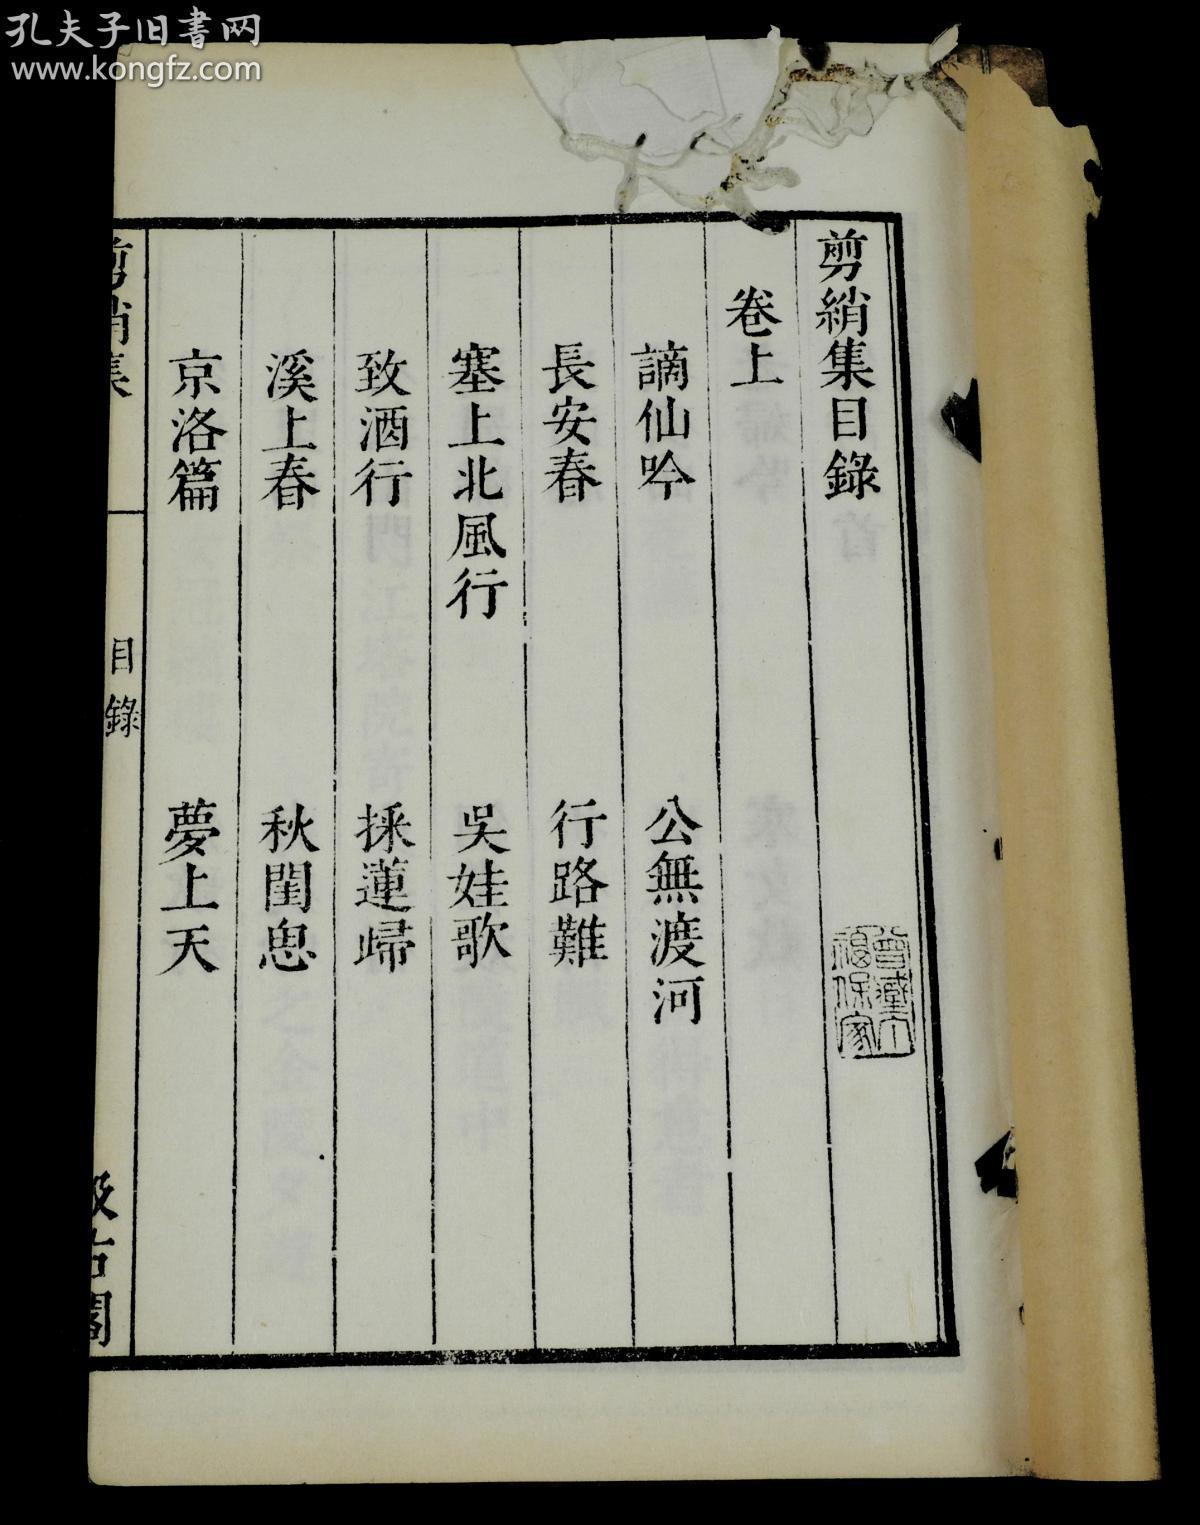 孔夫子旧书网
www.kongfz.com
剪綃集目錄
卷上
謫仙吟
公無渡河
長安春
行路難
塞上北風行
吳娃歌
致酒行
採蓮歸
溪上春
秋閨思
京洛篇
夢上天
剪綃集
目錄
汲古閣
曾藏丁
福保家